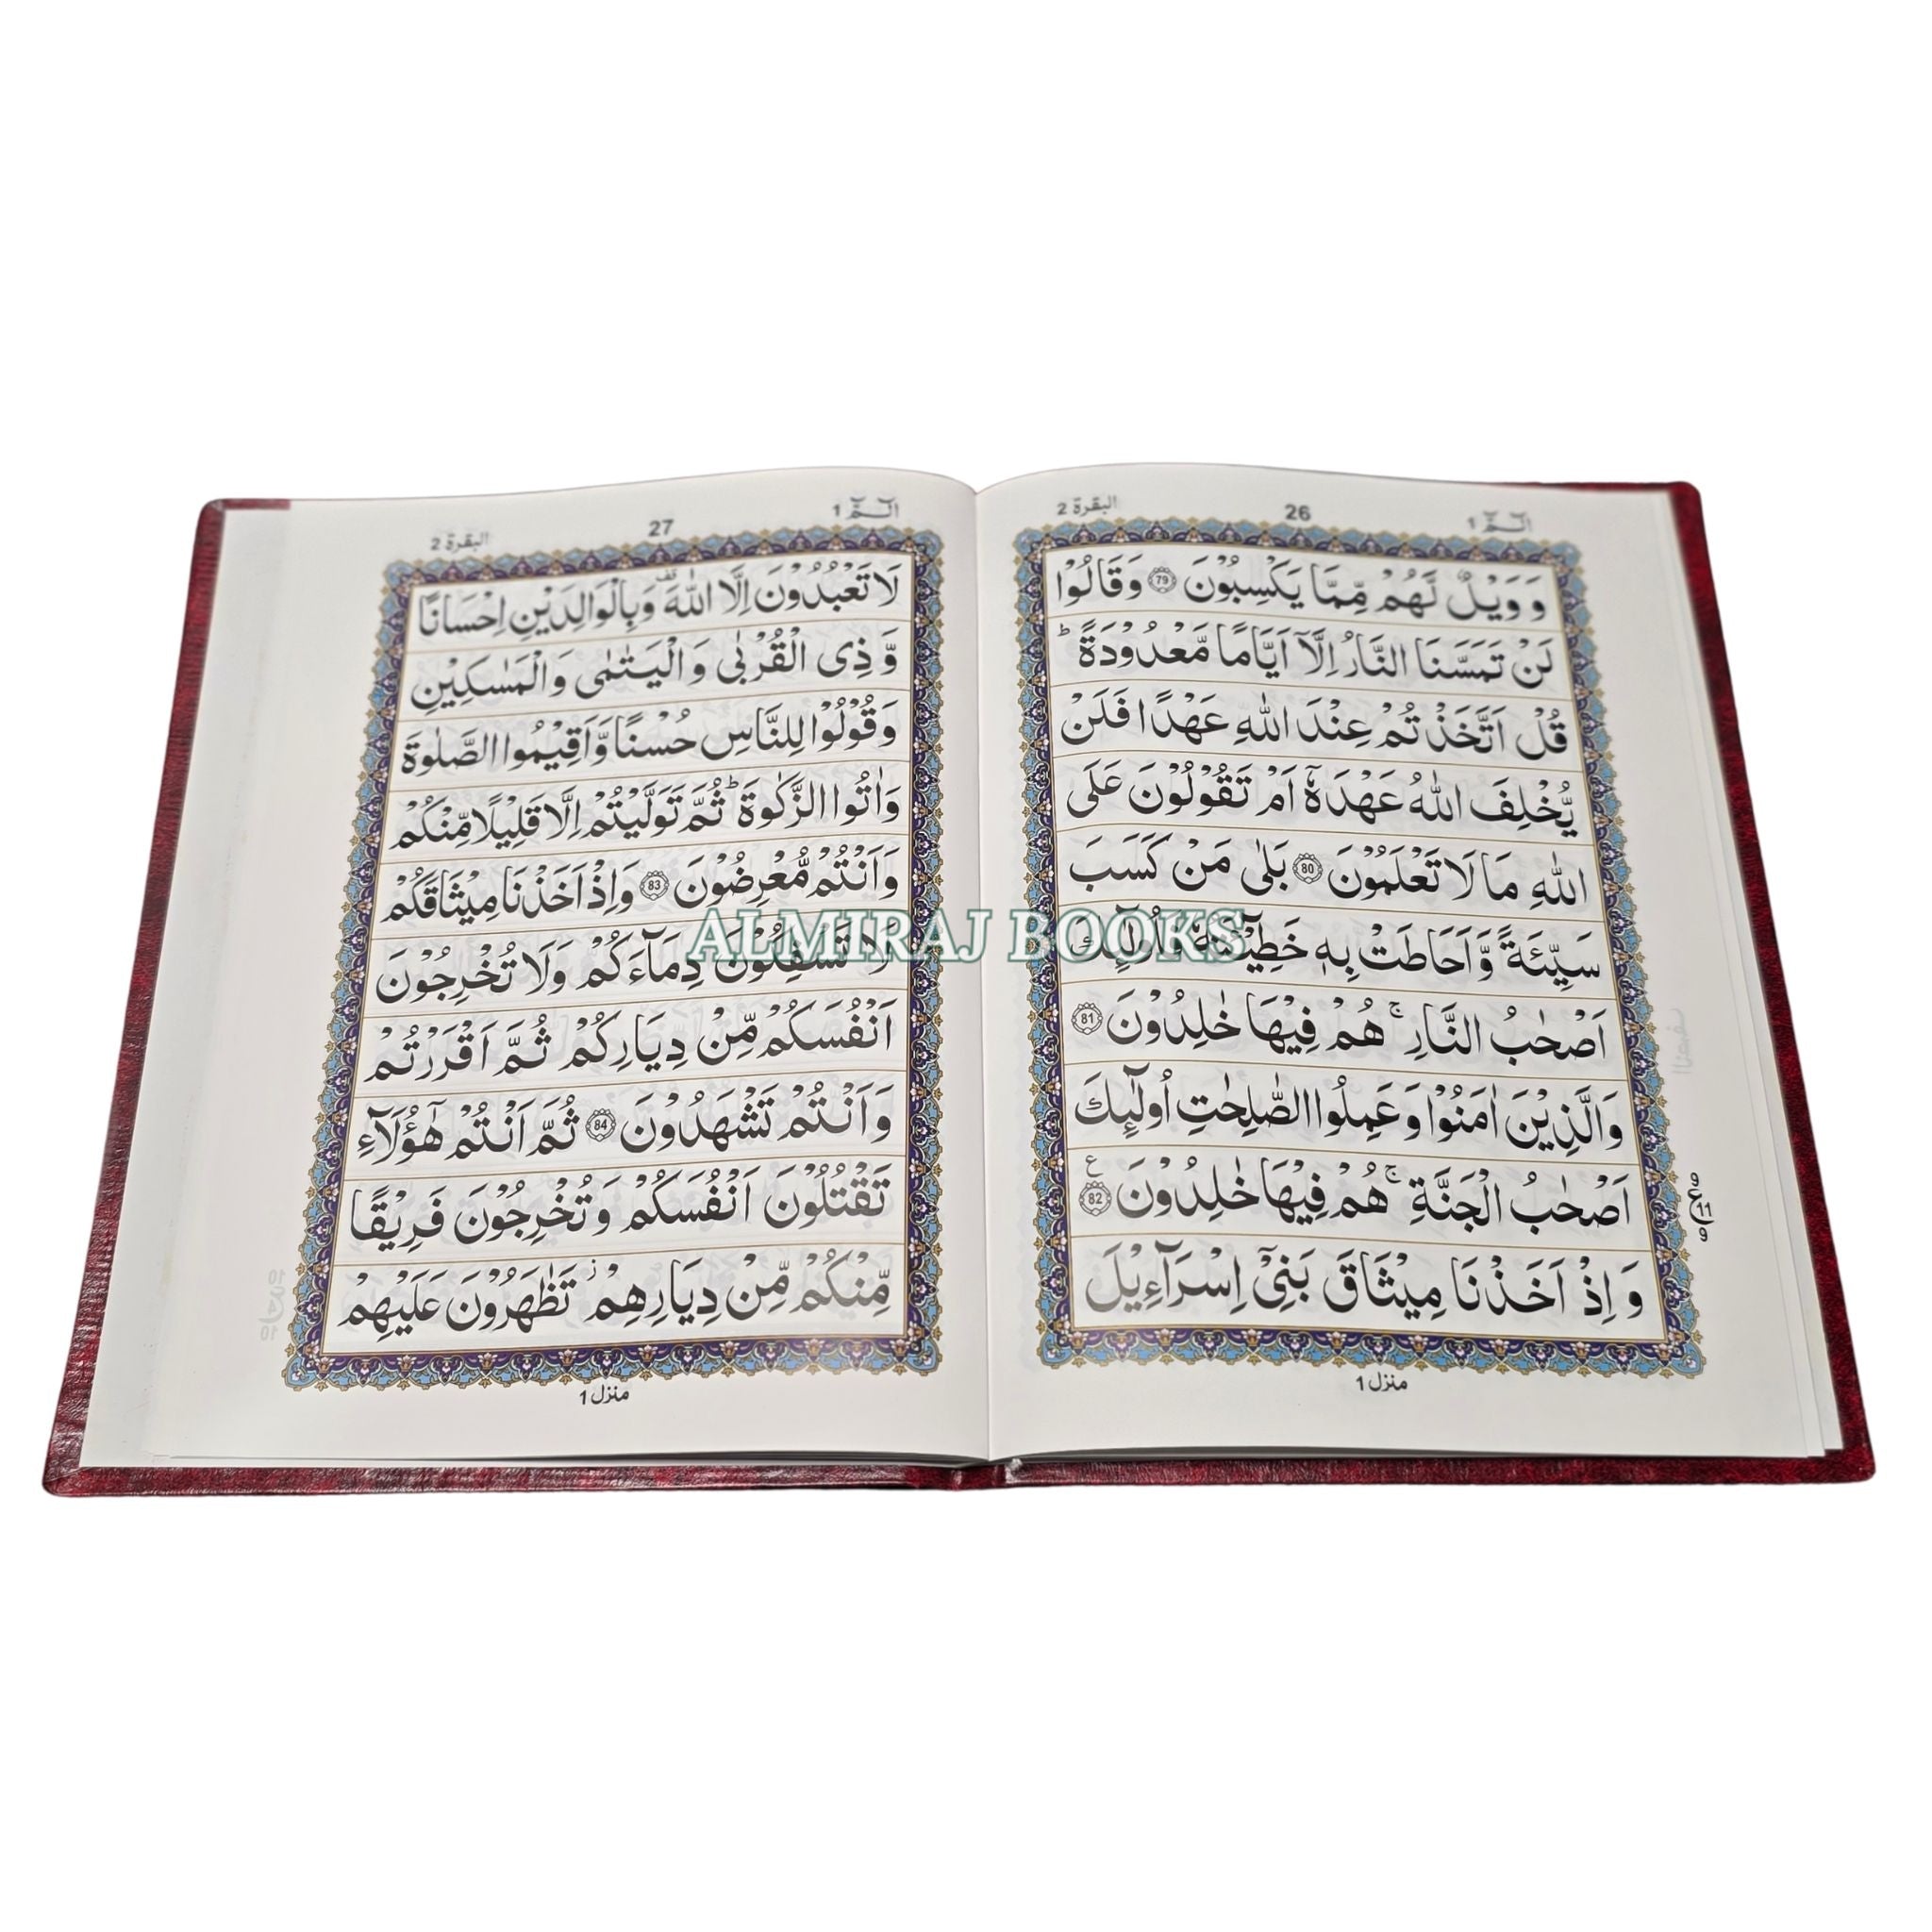 الٓـمّٓ 1
26
البقرة 2
وَ وَيْلٌ لَّهُمْ مِّمَّا يَكْسِبُوْنَ 79 وَقَالُوْا
لَنْ تَمَسَّنَا النَّارُ اِلَّآ اَيَّامًا مَّعْدُوْدَةً ؕ
قُلْ اَتَّخَذْتُمْ عِنْدَ اللّٰهِ عَهْدًا فَلَنْ
يُّخْلِفَ اللّٰهُ عَهْدَهٗٓ اَمْ تَقُوْلُوْنَ عَلَى
اللّٰهِ مَا لَا تَعْلَمُوْنَ 80 بَلٰى مَنْ كَسَبَ
سَيِّئَةً وَّاَحَاطَتْ بِهٖ خَطِيْٓئَتُهٗ فَاُولٰٓئِكَ
اَصْحٰبُ النَّارِ ۚ هُمْ فِيْهَا خٰلِدُوْنَ 81
وَالَّذِيْنَ اٰمَنُوْا وَعَمِلُوا الصّٰلِحٰتِ اُولٰٓئِكَ
اَصْحٰبُ الْجَنَّةِ ۚ هُمْ فِيْهَا خٰلِدُوْنَ 82 ع
وَ اِذْ اَخَذْنَا مِيْثَاقَ بَنِيْٓ اِسْرَآءِيْلَ
ع 11 9
منزل 1
الٓـمّٓ 1
27
البقرة 2
لَا تَعْبُدُوْنَ اِلَّا اللّٰهَ قف وَبِالْوَالِدَيْنِ اِحْسَانًا
وَّ ذِى الْقُرْبٰى وَالْيَتٰمٰى وَالْمَسٰكِيْنِ
وَقُوْلُوْا لِلنَّاسِ حُسْنًا وَّاَقِيْمُوا الصَّلٰوةَ
وَاٰتُوا الزَّكٰوةَ ؕ ثُمَّ تَوَلَّيْتُمْ اِلَّا قَلِيْلًا مِّنْكُمْ
وَاَنْتُمْ مُّعْرِضُوْنَ 83 وَاِذْ اَخَذْنَا مِيْثَاقَكُمْ
لَا تَسْفِكُوْنَ دِمَآءَكُمْ وَلَا تُخْرِجُوْنَ
اَنْفُسَكُمْ مِّنْ دِيَارِكُمْ ثُمَّ اَقْرَرْتُمْ
وَاَنْتُمْ تَشْهَدُوْنَ 84 ثُمَّ اَنْتُمْ هٰٓؤُلَآءِ
تَقْتُلُوْنَ اَنْفُسَكُمْ وَتُخْرِجُوْنَ فَرِيْقًا
مِّنْكُمْ مِّنْ دِيَارِهِمْ ز تَظٰهَرُوْنَ عَلَيْهِمْ
منزل 1
ALMIRAJ BOOKS